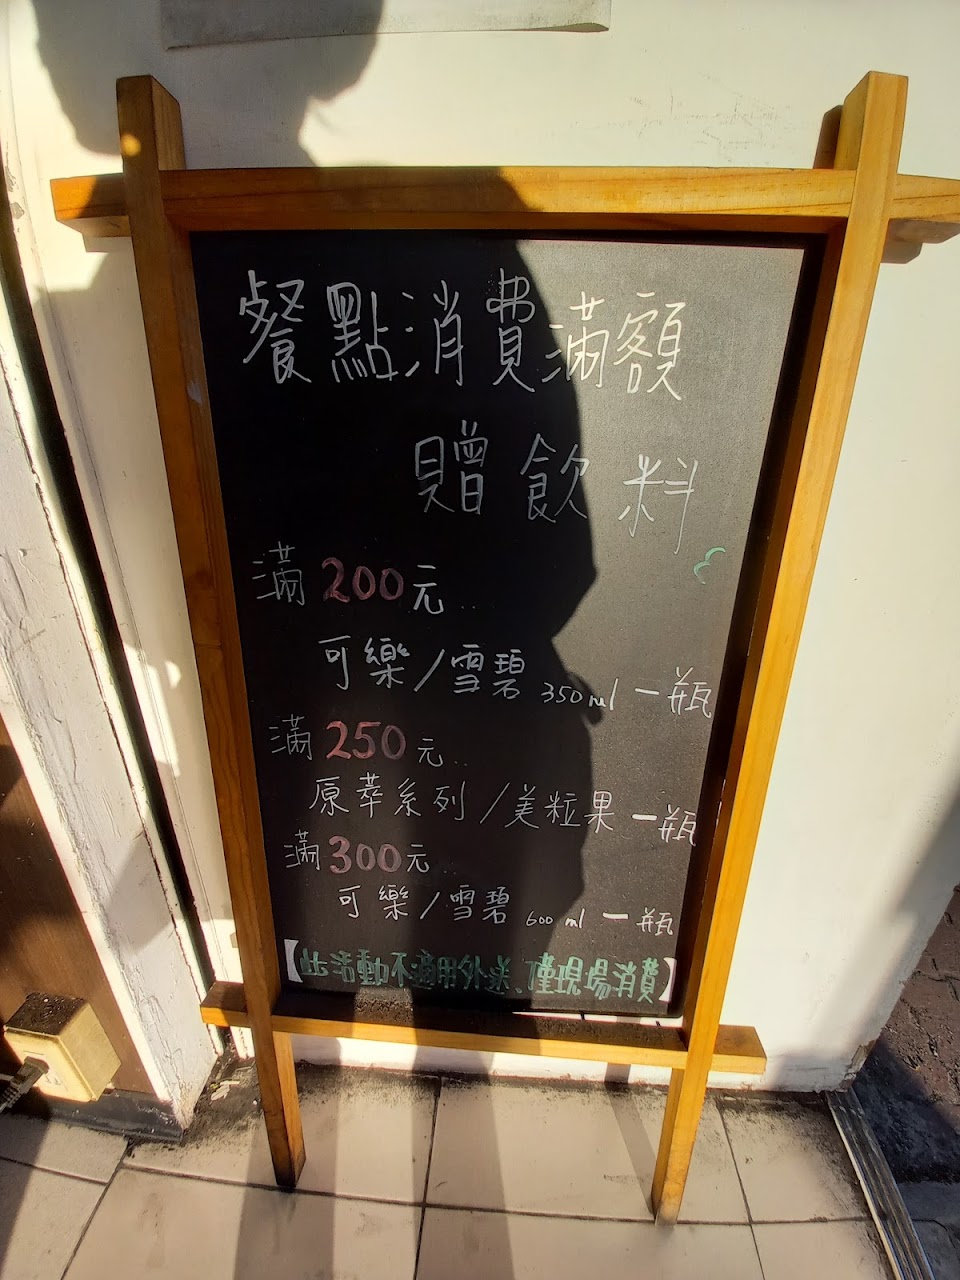 餐點消費滿額
贈飲料
滿200元...
可樂/雪碧 350ml 一瓶
滿250元...
原萃系列/美粒果 一瓶
滿300元...
可樂/雪碧 600ml 一瓶
【此活動不適用外送、僅現場消費】